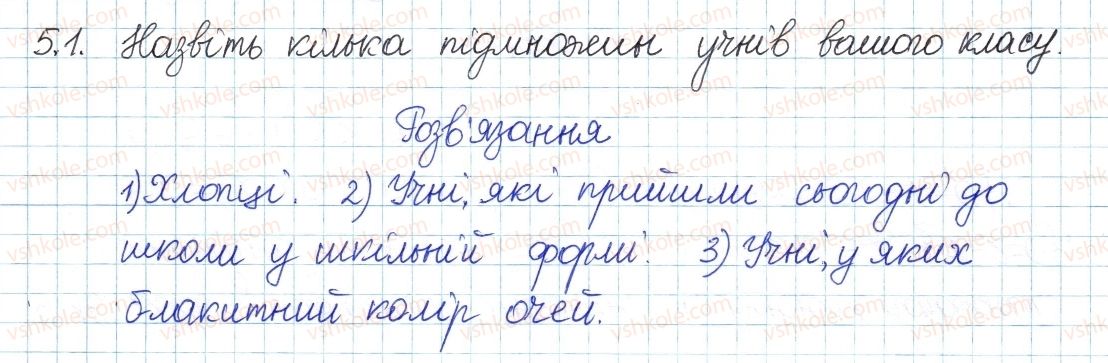 5.1. Назвіть кілька підмножин учнів вашого класу.
Розв'язання
1) Хлопці. 2) Учні, які прийшли сьогодні до
школи у шкільній формі. 3) Учні, у яких
блакитний колір очей.